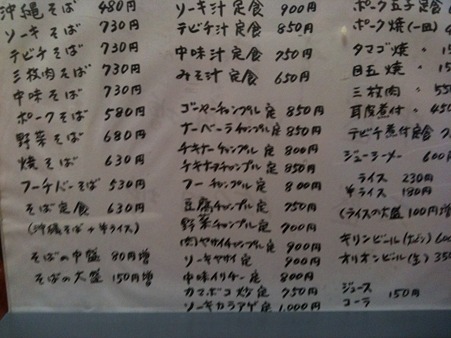 沖縄そば 480円
ソーキそば 730円
テビチそば 730円
三枚肉そば 730円
中味そば 730円
ポークそば 580円
野菜そば 680円
焼そば 630円
フーチバーそば 530円
そば定食 630円
(沖縄そば+半ライス)
そばの中盛 80円増
そばの大盛 150円増
ソーキ汁定食 900円
テビチ汁定食 850円
中味汁定食 750円
みそ汁定食 650円
ゴーヤーチャンプル定 850円
ナーベーラチャンプル定 850円
チキナーチャンプル定 800円
チキアギチャンプル定 850円
フーチャンプル定 800円
豆腐チャンプル定 750円
野菜チャンプル定 700円
(肉)ヤサイチャンプル定 900円
ソーキヤサイ定 900円
中味イリチー定 800円
カマボコ炒定 750円
ソーキカラアゲ定 1,000円
ポーク玉子定食
ポーク焼(一皿)
タマゴ焼 〃
目玉焼 〃
三枚肉 〃
耳皮煮付 〃
テビチ煮付定食
ジューシーメー 600
ライス 230円
半ライス 180円
(ライスの大盛 100円増
キリンビール(ビン)
オリオンビール(生) 35
ジュース
コーラ 150円